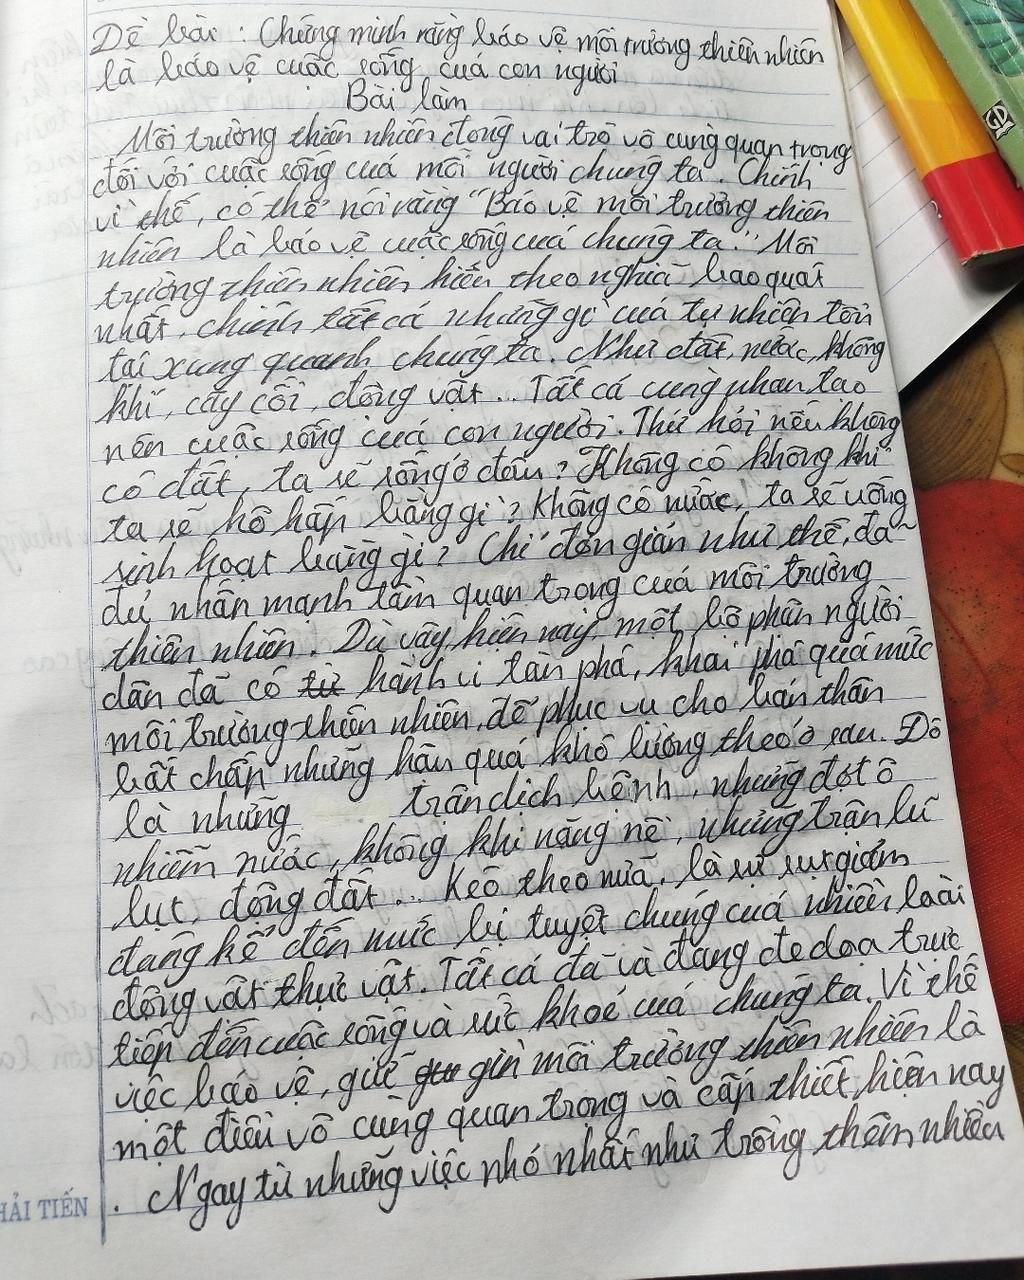 Đề bài : Chứng minh rằng bảo vệ môi trường thiên nhiên
là bảo vệ cuộc sống của con người
Bài làm
Môi trường thiên nhiên đóng vai trò vô cùng quan trọng
đối với cuộc sống của mỗi người chúng ta. Chính
vì thế, có thể nói rằng "Bảo vệ môi trường thiên
nhiên là bảo vệ cuộc sống của chúng ta." Môi
trường thiên nhiên hiểu theo nghĩa bao quát
nhất, chính tất cả những gì của tự nhiên tồn
tại xung quanh chúng ta. Như đất, nước, không
khí, cây cối, động vật... Tất cả cùng nhau tạo
nên cuộc sống của con người. Thử hỏi nếu không
có đất, ta sẽ sống ở đâu? Không có không khí
ta sẽ hô hấp bằng gì? Không có nước, ta sẽ uống
sinh hoạt bằng gì? Chỉ đơn giản như thế, đã
đủ nhấn mạnh tầm quan trọng của môi trường
thiên nhiên. Dù vậy, hiện nay, một bộ phận người
dân đã có hành vi tàn phá, khai phá quá mức
môi trường thiên nhiên, để phục vụ cho bản thân
bất chấp những hậu quả khó lường theo ở sau. Đó
là những trận dịch bệnh, những đợt ô
nhiễm nước, không khí nặng nề, những trận lũ
lụt, động đất... Kéo theo nữa, là sự sụt giảm
đáng kể đến mức bị tuyệt chủng của nhiều loài
động vật thực vật. Tất cả đã và đang đe dọa trực
tiếp đến cuộc sống và sức khoẻ của chúng ta. Vì thế
việc bảo vệ, giữ gìn môi trường thiên nhiên là
một điều vô cùng quan trọng và cấp thiết hiện nay
. Ngay từ những việc nhỏ nhất như trồng thêm nhiều
HẢI TIẾN
GD